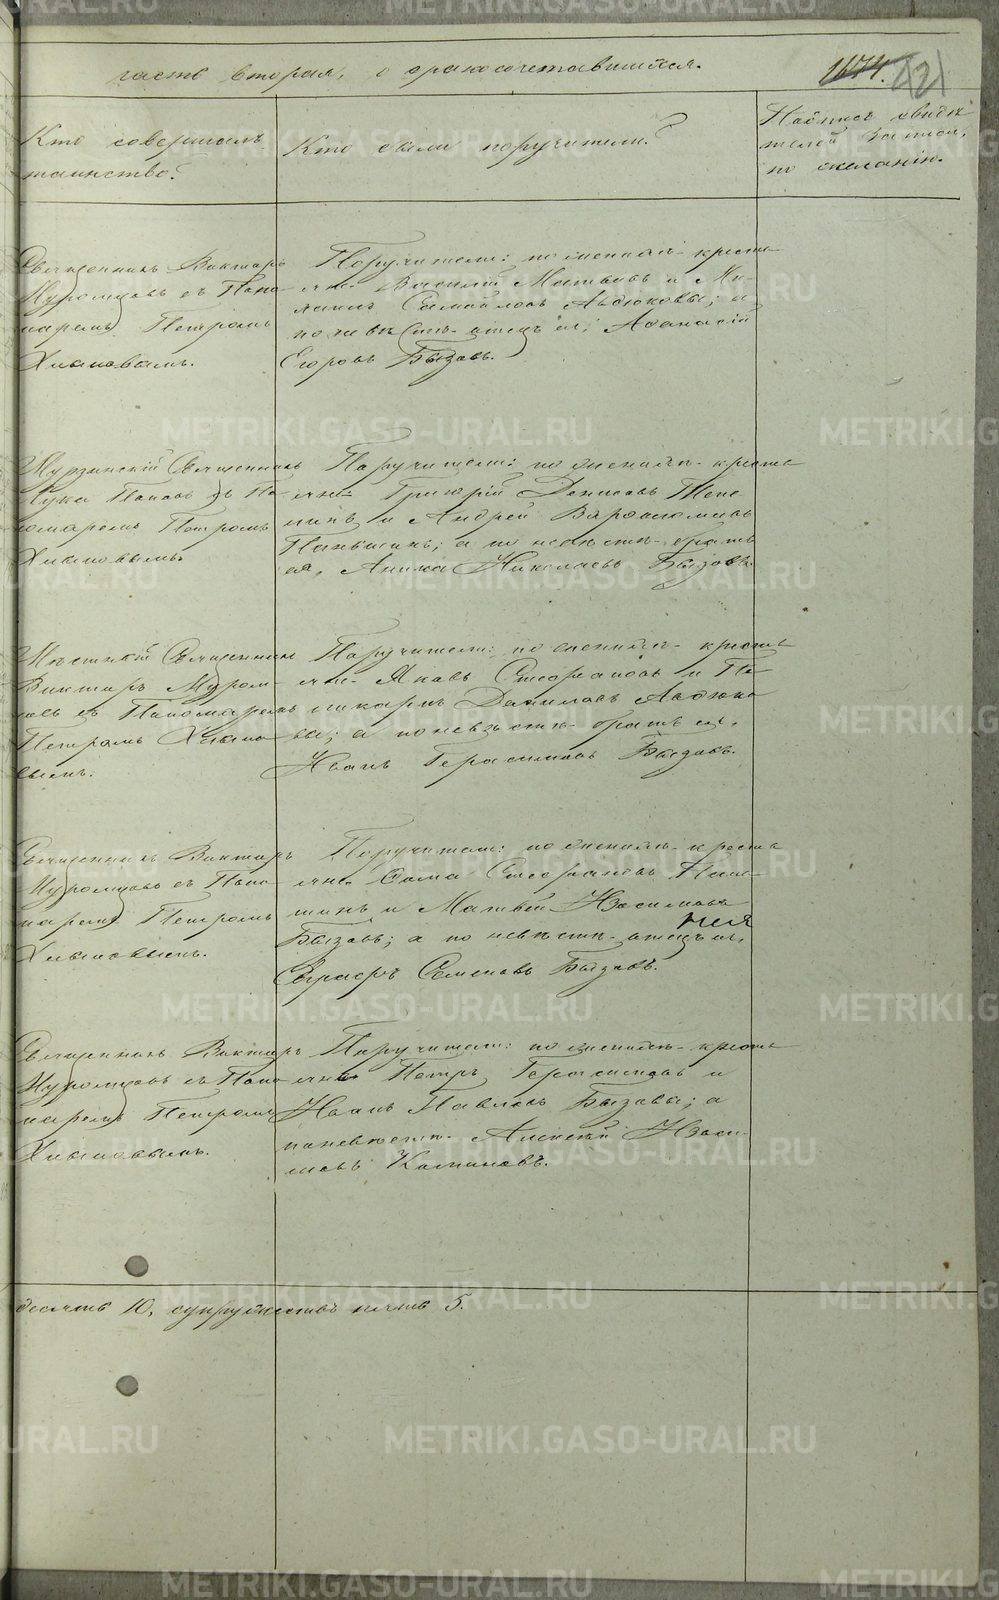 часть вторая, о бракосочетавшихся.
1674. 121
Кто совершалъ
таинство?
Кто были поручители?
свидѣ
телей записи,
по желанію.
Священникъ Викторъ
Муромцовъ съ Поно
маремъ Петромъ
Хлыновымъ.
Поручители: по женихѣ- кресть
яне Василій Матвѣевъ и Ми-
хаилъ Самойловъ Авдюковы; а
по невѣстѣ- отецъ ея, Афанасій
Егоровъ Бызовъ.
Мурзинскій Священникъ
Лука Поповъ съ По
номаремъ Петромъ
Хлыновымъ.
Поручители: по женихѣ- кресть
яне Григорій Денисовъ
и Андрей Варфоломѣевъ
Паньшинъ; а по невѣстѣ- братъ
ея, Аника Николаевъ Бызовъ.
Мѣстный Священникъ
Викторъ Муром
цовъ съ Пономаремъ
Петромъ Хлыно
вымъ.
Поручители: по женихѣ- кресть
яне Яковъ Стефановъ и По
ликарпъ Даниловъ Авдюко
вы; а по невѣстѣ- братъ ея,
Иванъ Герасимовъ Бызовъ.
Священникъ Викторъ
Муромцовъ съ Поно
маремъ Петромъ
Хлыновымъ.
Поручители: по женихѣ- кресть
яне Ѳома Стефановъ Пань
шинъ и Матвей Изосимовъ
Бызовъ; а по невѣстѣ- отецъ ея,
нея
Евграфъ Семеновъ Бызовъ.
Священникъ Викторъ
Муромцовъ съ Поно
маремъ Петромъ
Хлыновымъ.
Поручители: по женихѣ- кресть
яне Петръ Герасимовъ и
Иванъ Павловъ Бызовы; а
по невѣстѣ- Алексѣй Изоси-
мовъ Калиновъ.
десять 10, супружествъ пять 5.
METRIKI.GASO-URAL.RU